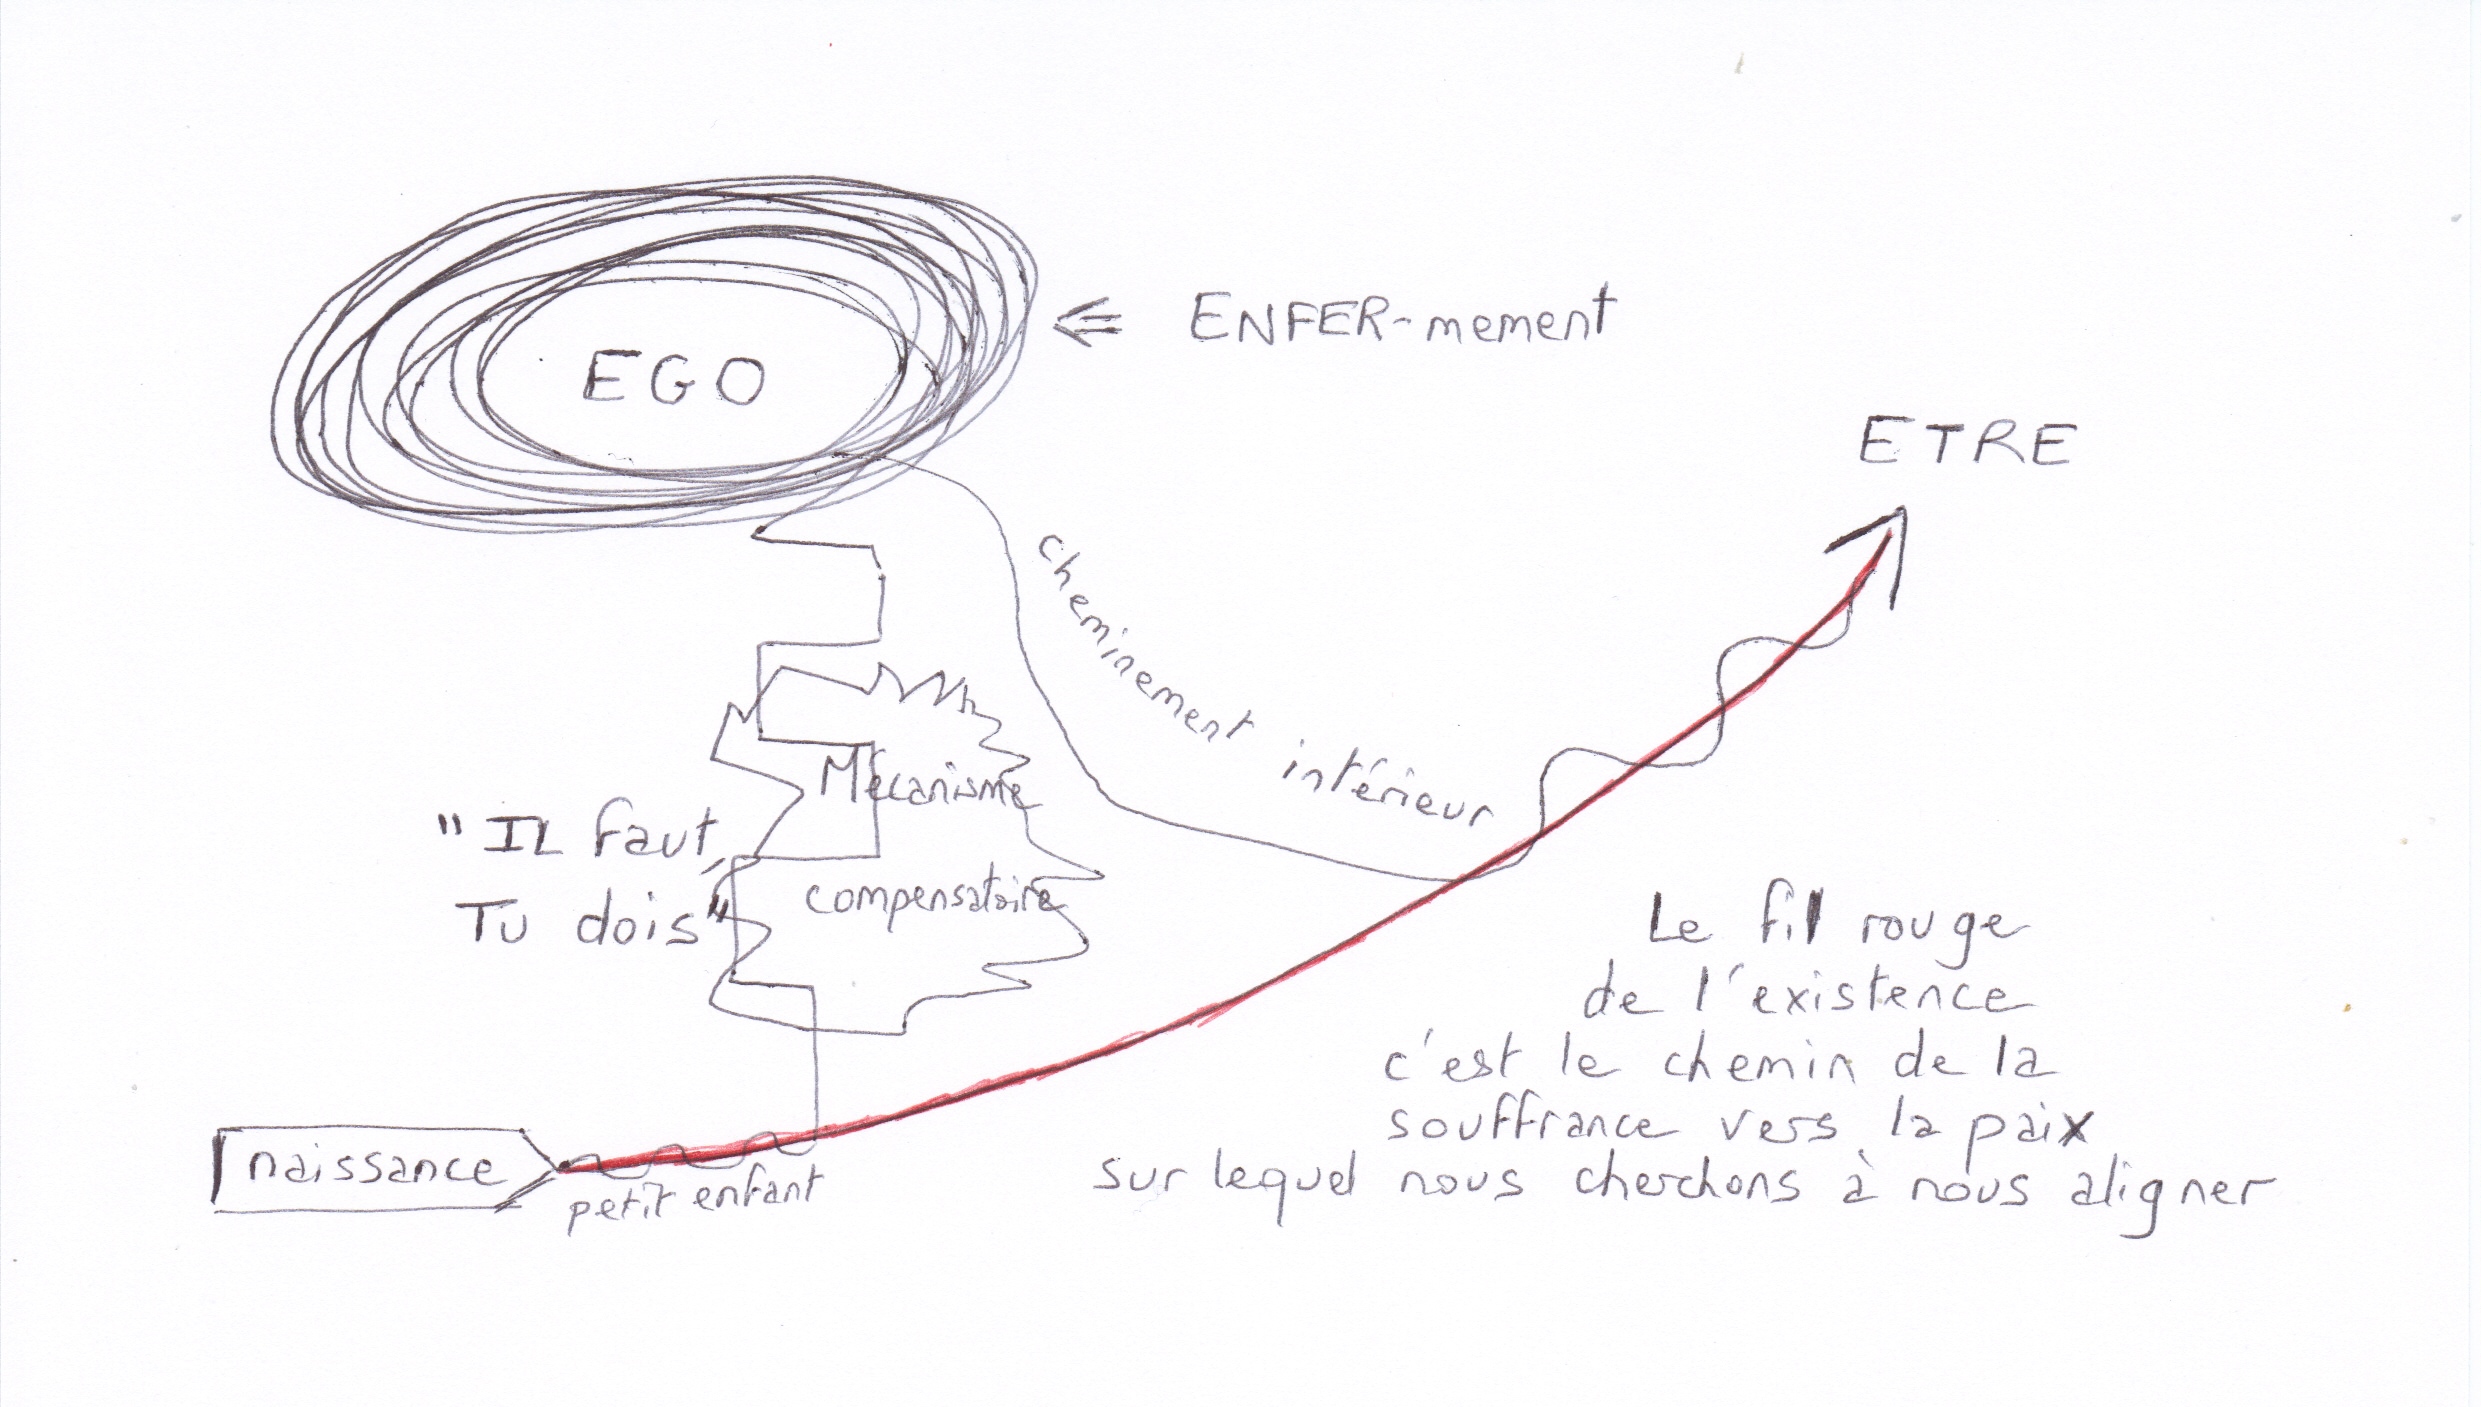 EGO
ENFER-mement
ETRE
cheminement intérieur
Mécanisme
compensatoire
"IL faut,
Tu dois"
naissance
petit enfant
Le fil rouge
de l'existence
c'est le chemin de la
souffrance vers la paix
sur lequel nous cherchons à nous aligner